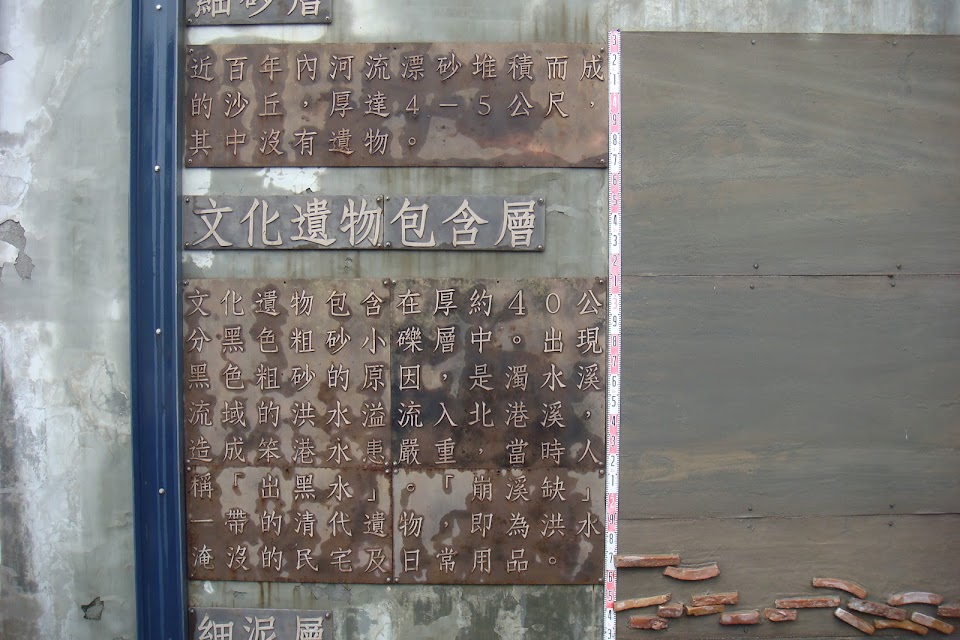 細砂層
近百年內河流漂砂堆積而成
的沙丘，厚達4－5公尺，
其中沒有遺物。
文化遺物包含層
文化遺物包含在厚約40公
分黑色粗砂小礫層中。出現
黑色粗砂的原因，是濁水溪
流域的洪水溢流入北港溪，
造成笨港水患嚴重，當時人
稱「出黑水」。「崩溪缺」
一帶的清代遺物，即為洪水
淹沒的民宅及日常用品。
細泥層